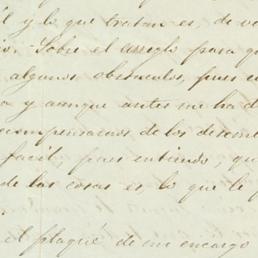 y lo que tratan es, de ve
Sobre el arreglo para q
algunos obstaculos, pues
y aunque antes me ha d
compensarnos de los
facil, pues entiendo qu
de las cosas es lo que le
el plaqué de mi encargo